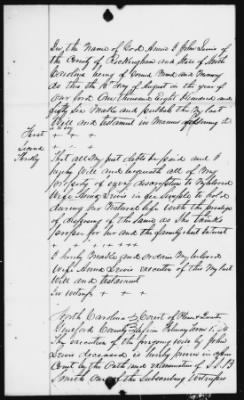 In the Name of God Amen I John Lewis of
the County of Rockingham and State of North
Carolina being of Sound Mind and Memory
do this the 18 day of August in the year of
our Lord One thousand Eight Hundred and
fifty Six Make and publish this My last
Will and testament in Manner following to
wit + + +
First + + +
Second + + +
Thirdly
That all My just debts be paid and I
hereby Will and bequeath all of My
property of every description to My beloved
Wife Anna Lewis in fee Simple to hold
during her Natural life with the privilege
of disposing of the same as She thinks
proper for her and the family best interest
+ + + + + + +
I hereby Make and ordain My beloved
Wife Anna Lewis executor of this My last
Will and testament
In witness + + +
North Carolina Court of Pleas & Quarter
County Term
The execution of the foregoing will by John
Lewis deceased is hereby proven in open
Court by the Oath and examination of
Smith One of the Subscribing Witnesses